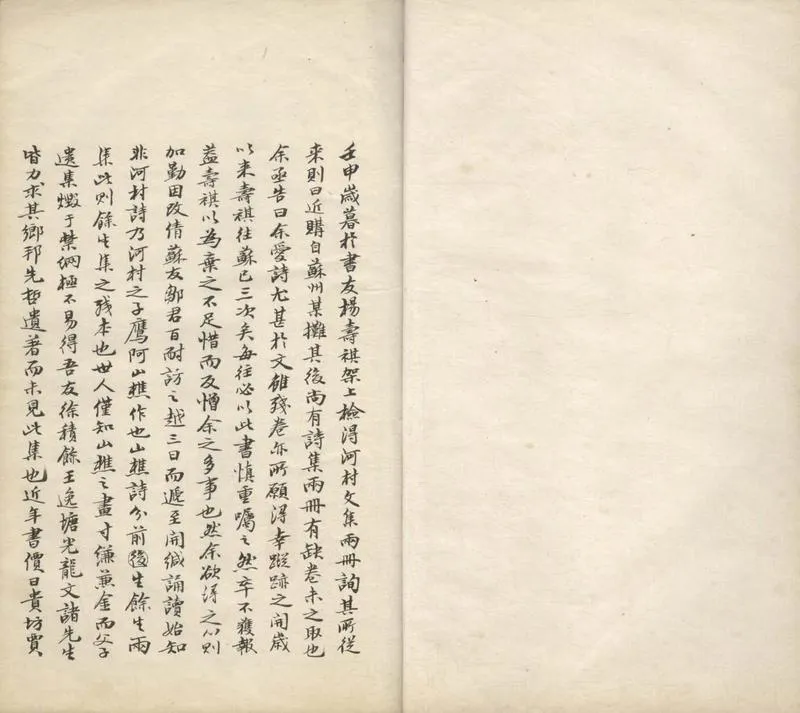 壬申歲暮於書友楊壽祺架上檢得河村文集兩冊詢其所從
來則曰近購自蘇州某攤其後尚有詩集兩冊有缺卷未之取也
余亟告曰余愛詩尤甚於文雖殘卷亦所願得幸蹤跡之開歲
以來壽祺往蘇已三次矣每往必以此書慎重囑之然卒不獲報
蓋壽祺以為棄之不足惜而反憎余之多事也然余欲得之心則
加勤因改倩蘇友鄒君百耐訪之越三日而遞至開緘誦讀始知
非河村詩乃河村之子鷹阿山樵作也山樵詩分前後生餘生兩
集此則餘生集之殘本也世人僅知山樵之畫寸縑兼金而父子
遺集燬于禁網極不易得吾友徐積餘王逸塘光龍文諸先生
皆力求其鄉邦先哲遺著而未見此集也近年書價日貴坊賈